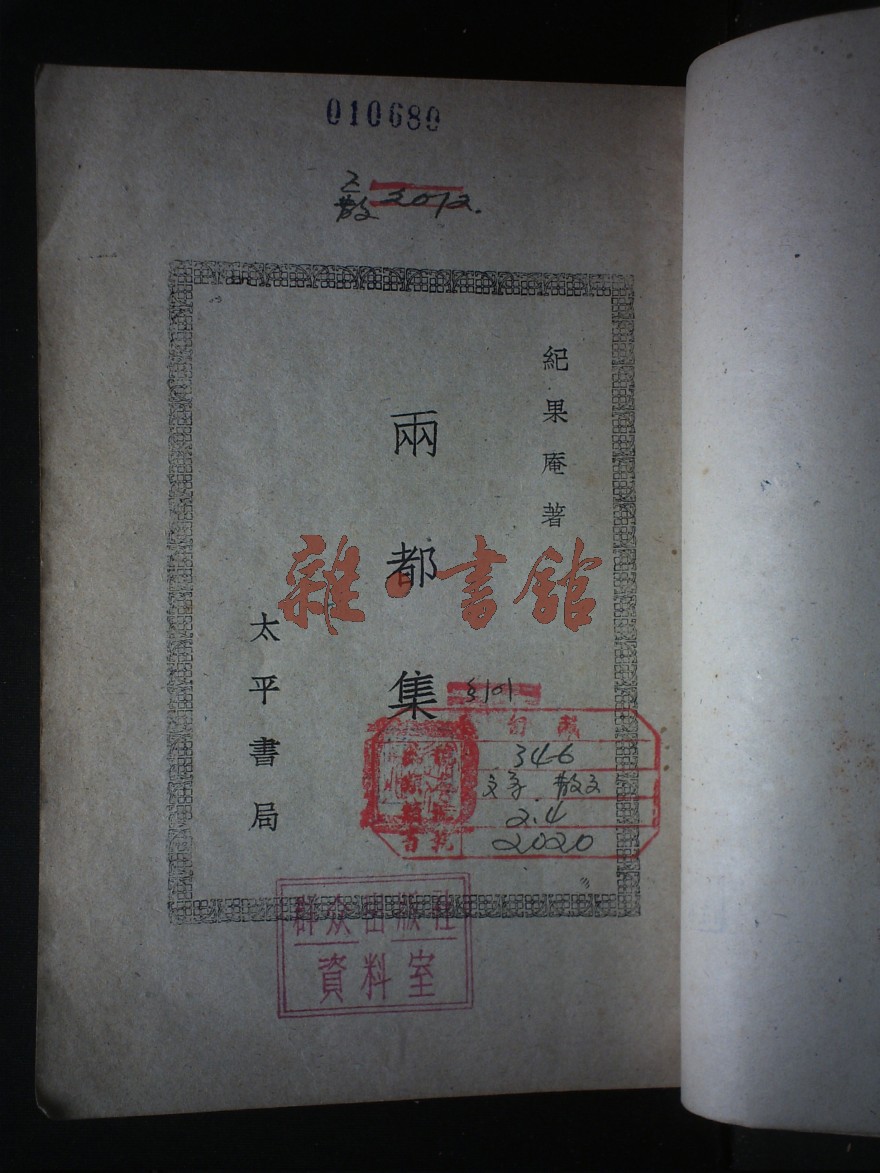 010680
散 2012.
紀果庵著
兩都集
太平書局
雜·書館
346
文学 散文
2.4
2020
群众出版社
資料室